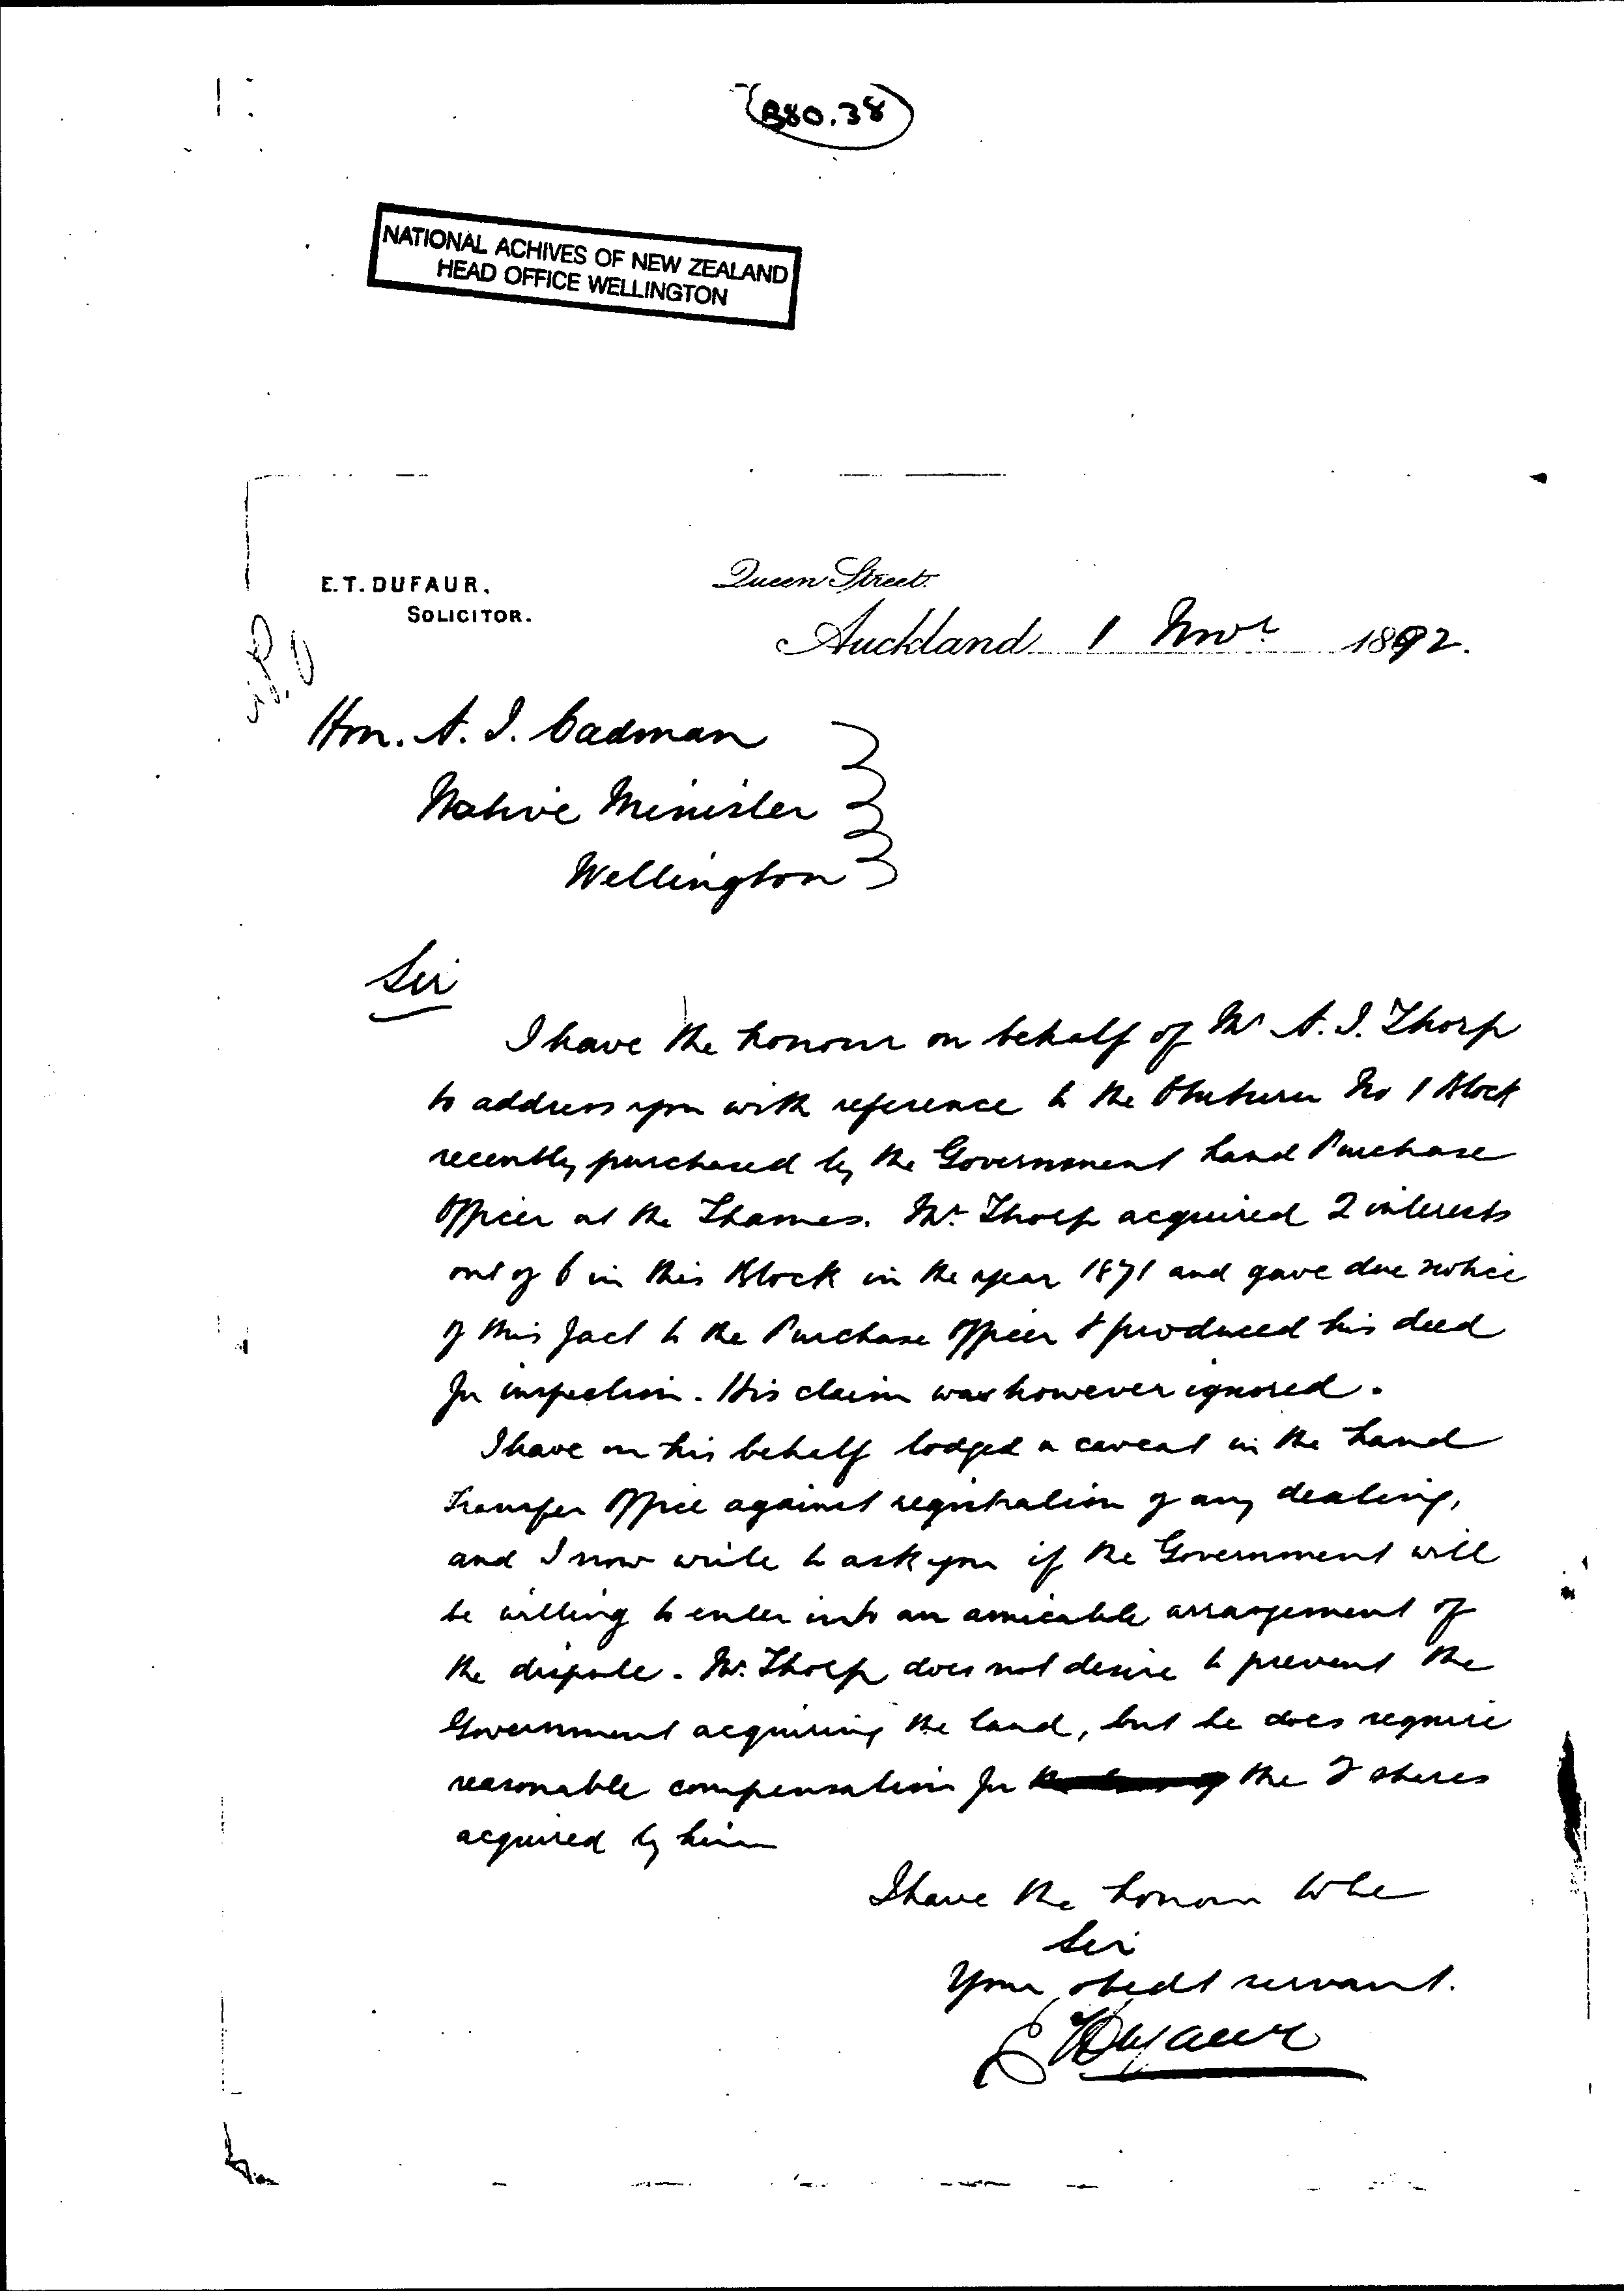 B80.38
NATIONAL ACHIVES OF NEW ZEALAND
HEAD OFFICE WELLINGTON
E.T. DUFAUR.
SOLICITOR.
Queen Street.
Auckland 1 Novr 1892.
Hon. A. J. Cadman
Native Minister
Wellington
Sir
I have the honour on behalf of Mr A. J. Thorp
to address you with reference to the No 1 Block
recently purchased by the Government Land Purchase
Officer at the Thames. Mr. Thorp acquired 2 interests
out of 6 in this Block in the year 1871 and gave due notice
of this fact to the Purchase Officer & produced his deed
for inspection. His claim was however ignored.
I have on his behalf lodged a caveat in the Land
Transfer Office against registration of any dealing,
and I now write to ask you if the Government will
be willing to enter into an amicable arrangement of
the dispute. Mr. Thorp does not desire to prevent the
Government acquiring the land, but he does require
reasonable compensation for the 2 shares
acquired by him
I have the honour to be
Sir
Your obedt servant.
E T Dufaur